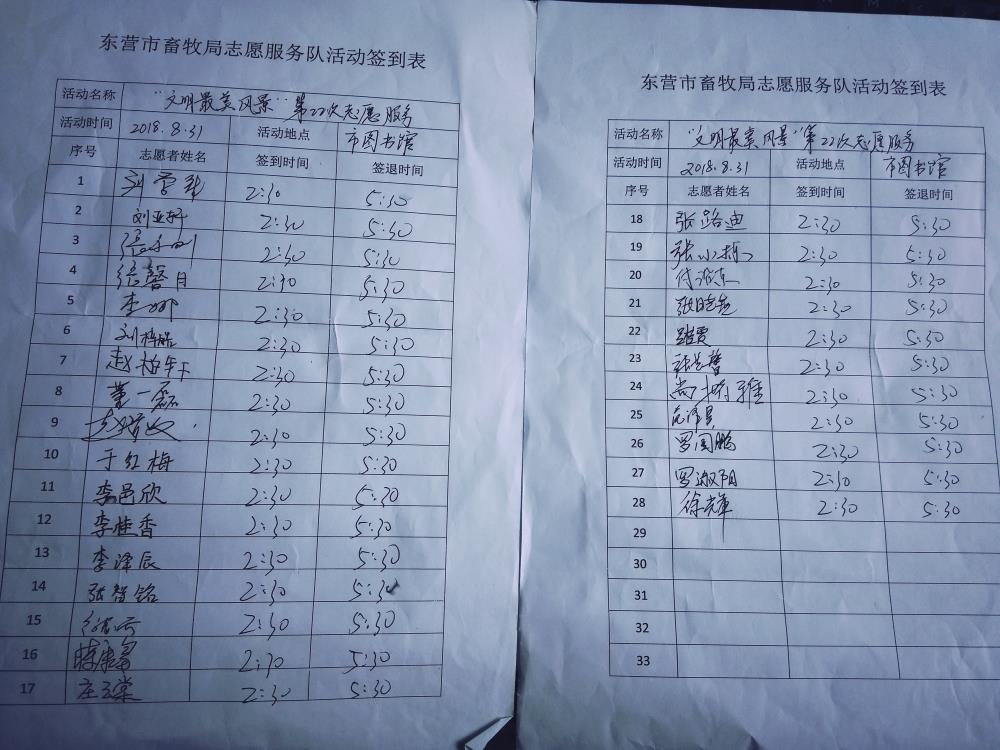 东营市畜牧局志愿服务队活动签到表
活动名称 “文明最美风景”第22次志愿服务
活动时间 2018.8.31 活动地点 市图书馆
序号 志愿者姓名 签到时间 签退时间
1 2:30 5:30
2 刘亚轩 2:30 5:30
3 2:30 5:30
4 2:30 5:30
5 李娜 2:30 5:30
6 2:30 5:30
7 赵柏轩 2:30 5:30
8 董一磊 2:30 5:30
9 2:30 5:30
10 于红梅 2:30 5:30
11 李邑欣 2:30 5:30
12 李桂香 2:30 5:30
13 李泽辰 2:30 5:30
14 张智铭 2:30 5:30
15 2:30 5:30
16 2:30 5:30
17 2:30 5:30
东营市畜牧局志愿服务队活动签到表
活动名称 “文明最美风景”第22次志愿服务
活动时间 2018.8.31 活动地点 市图书馆
序号 志愿者姓名 签到时间 签退时间
18 张路迪 2:30 5:30
19 2:30 5:30
20 2:30 5:30
21 2:30 5:30
22 2:30 5:30
23 2:30 5:30
24 2:30 5:30
25 2:30 5:30
26 罗国鹏 2:30 5:30
27 罗淑阳 2:30 5:30
28 徐光辉 2:30 5:30
29
30
31
32
33